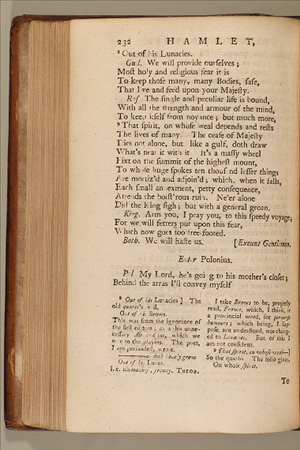 232 HAMLET,
⁸ Out of his Lunacies.
Guil. We will provide ourselves;
Most holy and religious fear it is
To keep those many, many Bodies, safe,
That live and feed upon your Majesty.
Ros. The single and peculiar life is bound,
With all the strength and armour of the mind,
To keep itself from noyance; but much more,
⁹ That spirit, on whose weal depends and rests
The lives of many. The cease of Majesty
Dies not alone, but like a gulf, doth draw
What's near it with it. It's a massy wheel
Fixt on the summit of the highest mount,
To whose huge spokes ten thousand lesser things
Are mortiz'd and adjoin'd; which, when it falls,
Each small annexment, petty consequence,
Attends the boist'rous ruin. Ne'er alone
Did the King sigh; but with a general groan.
King. Arm you, I pray you, to this speedy voyage;
For we will fetters put upon this fear,
Which now goes too free-footed.
Both. We will haste us. [Exeunt Gentlemen.
Enter Polonius.
Pol. My Lord, he's going to his mother's closet;
Behind the arras I'll convey myself
⁸ Out of his Lunacies] The
old quarto's read,
Out of his Brows.
This was from the ignorance of
the first
to the players. The poet,
I am persuaded, wrote,
Out of his Lunes.
i.e. madness, frenzy. THEOB.
I take Brows to be, properly
read, Frows, which, I think, is
a provincial word, for perverse
humours; which being, I suppose,
not understood, was changed
to Lunacies. But of this I
am not confident.
⁹ That spirit, on whose weal—]
So the quarto. The folio gives,
On whose spirit.
To